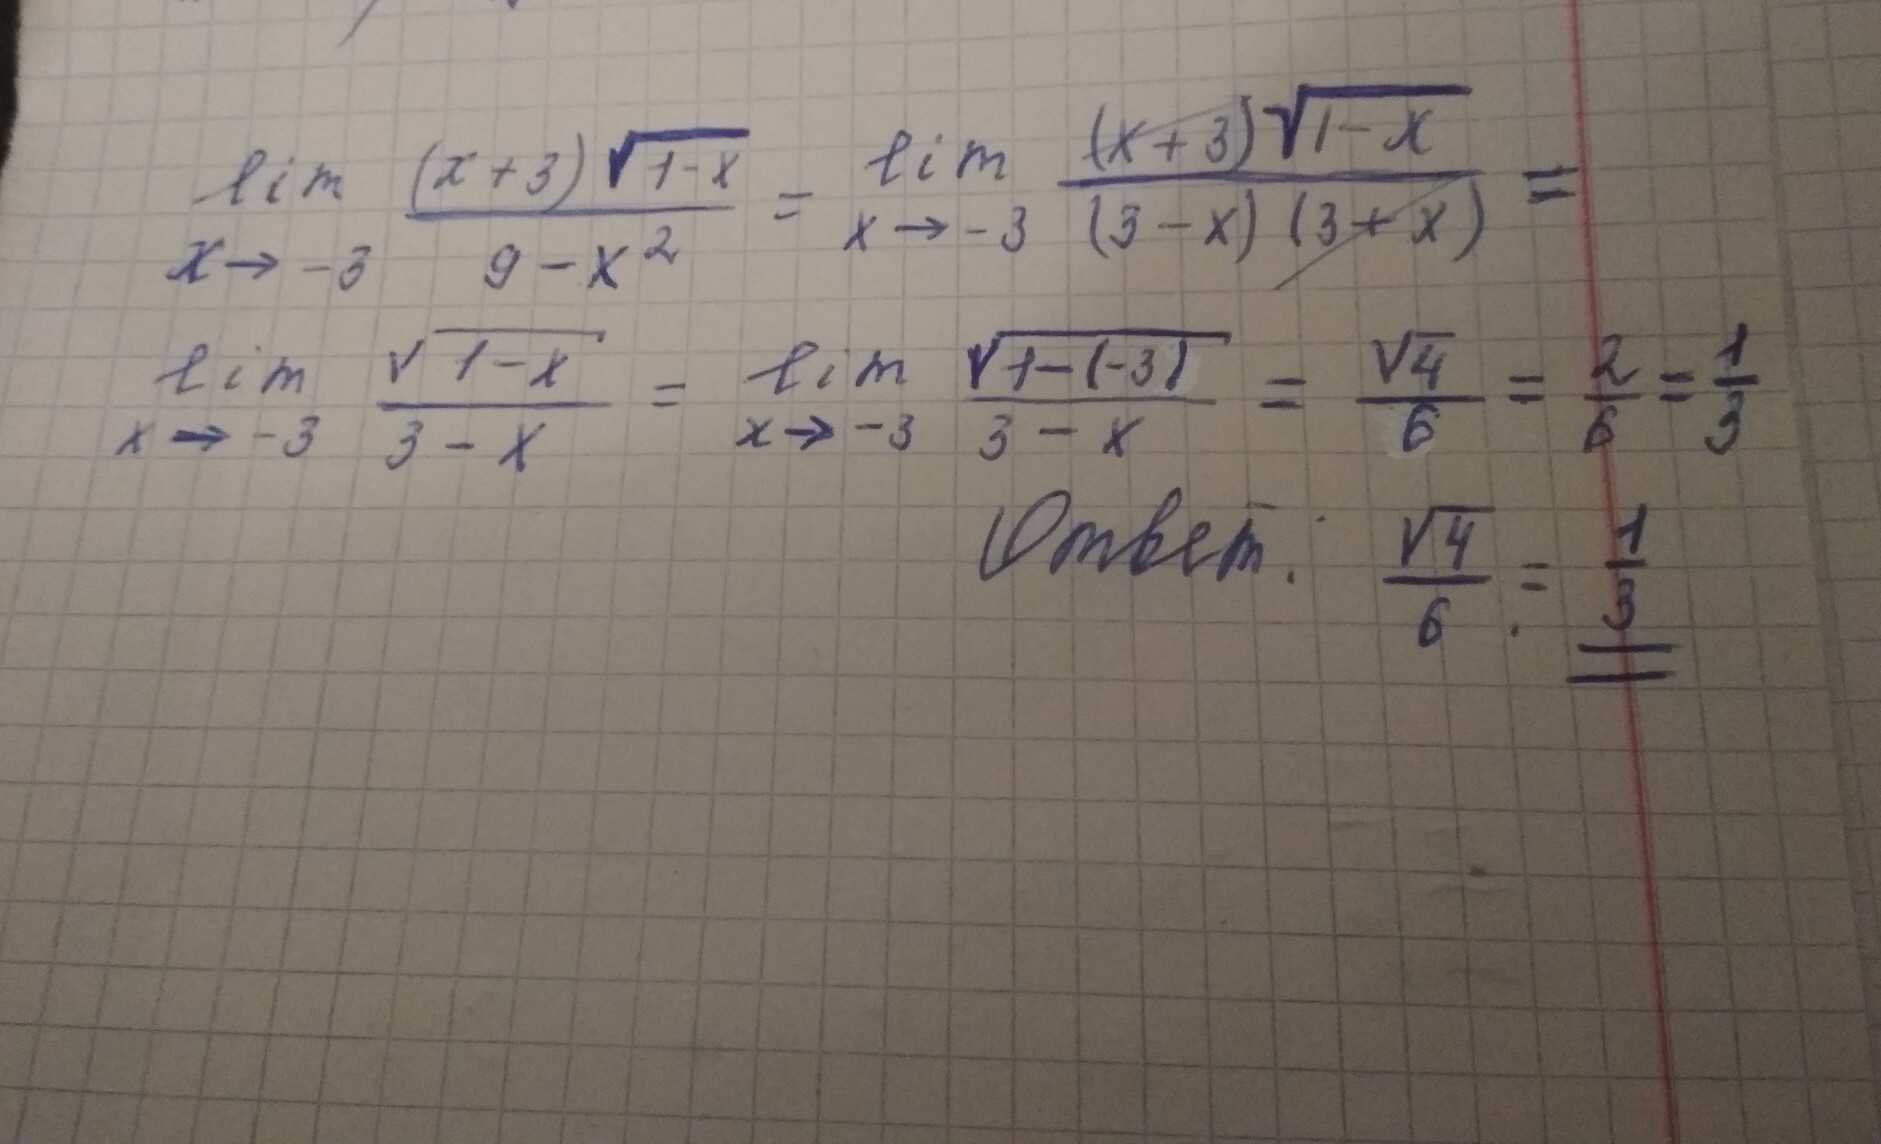 lim x→-3 (x+3)√(1-x) / (9-x²) = lim x→-3 (x+3)√(1-x) / ((3-x)(3+x)) =
lim x→-3 √(1-x) / (3-x) = lim x→-3 √(1-(-3)) / (3-x) = √4/6 = 2/6 = 1/3
Ответ: √4/6 = 1/3